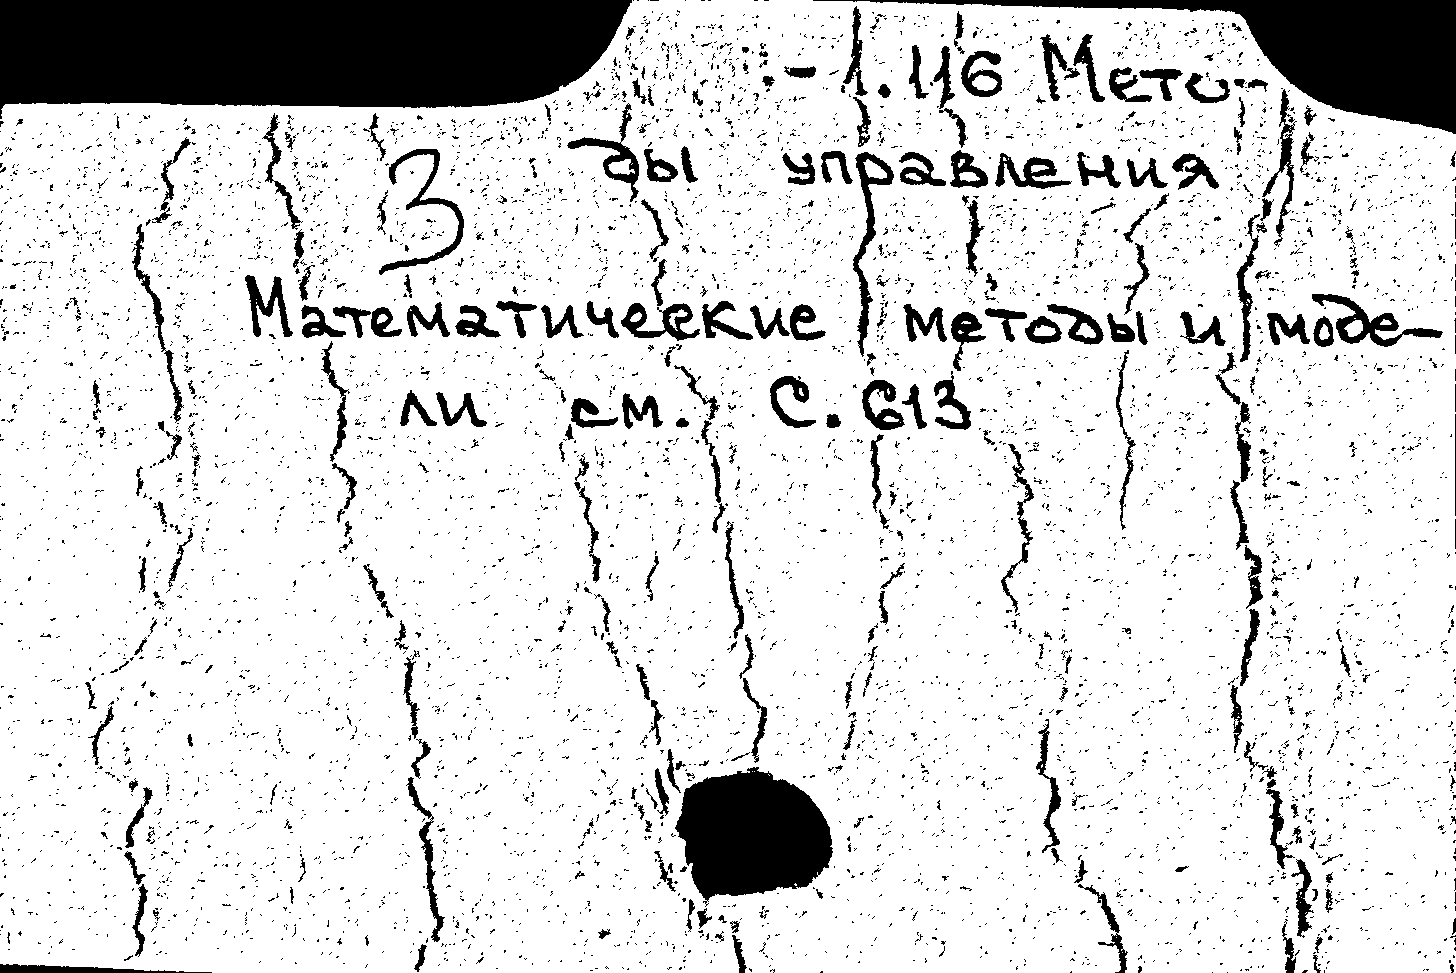 .-1.116 Мето-
ды управления
3
Математические методы и моде-
ли см. С.613